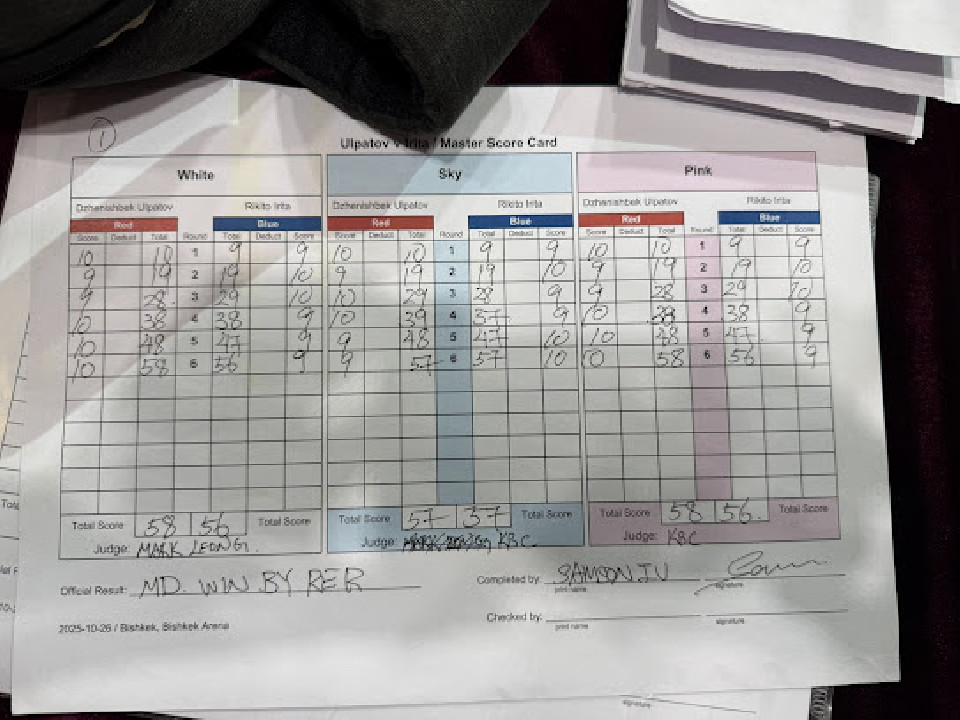 1
Ulpatov v Irita / Master Score Card
White Sky Pink
Dzhenishbek Ulpatov Rikito Irita Dzhenishbek Ulpatov Rikito Irita Dzhenishbek Ulpatov Rikito Irita
Red Blue Red Blue Red Blue
Score Deduct Total Round Total Deduct Score Score Deduct Total Round Total Deduct Score Score Deduct Total Round Total Deduct Score
10 10 1 9 9 10 10 1 9 9 10 10 1 9 9
9 19 2 19 10 9 19 2 19 10 9 19 2 19 10
9 28 3 29 10 10 29 3 28 9 9 28 3 29 10
10 38 4 38 9 10 39 4 37 9 10 38 4 38 9
10 48 5 47 9 9 48 5 47 10 10 48 5 47 9
10 58 6 56 9 9 57 6 57 10 10 58 6 56 9
Total Score 58 56 Total Score Total Score 57 57 Total Score Total Score 58 56 Total Score
Judge: MARK LEONG. Judge: KBC Judge: KBC
Official Result: MD. WIN BY RER Completed by: SAMSON IU
print name signature
Checked by:
print name signature
2025-10-26 / Bishkek, Bishkek Arena
signature